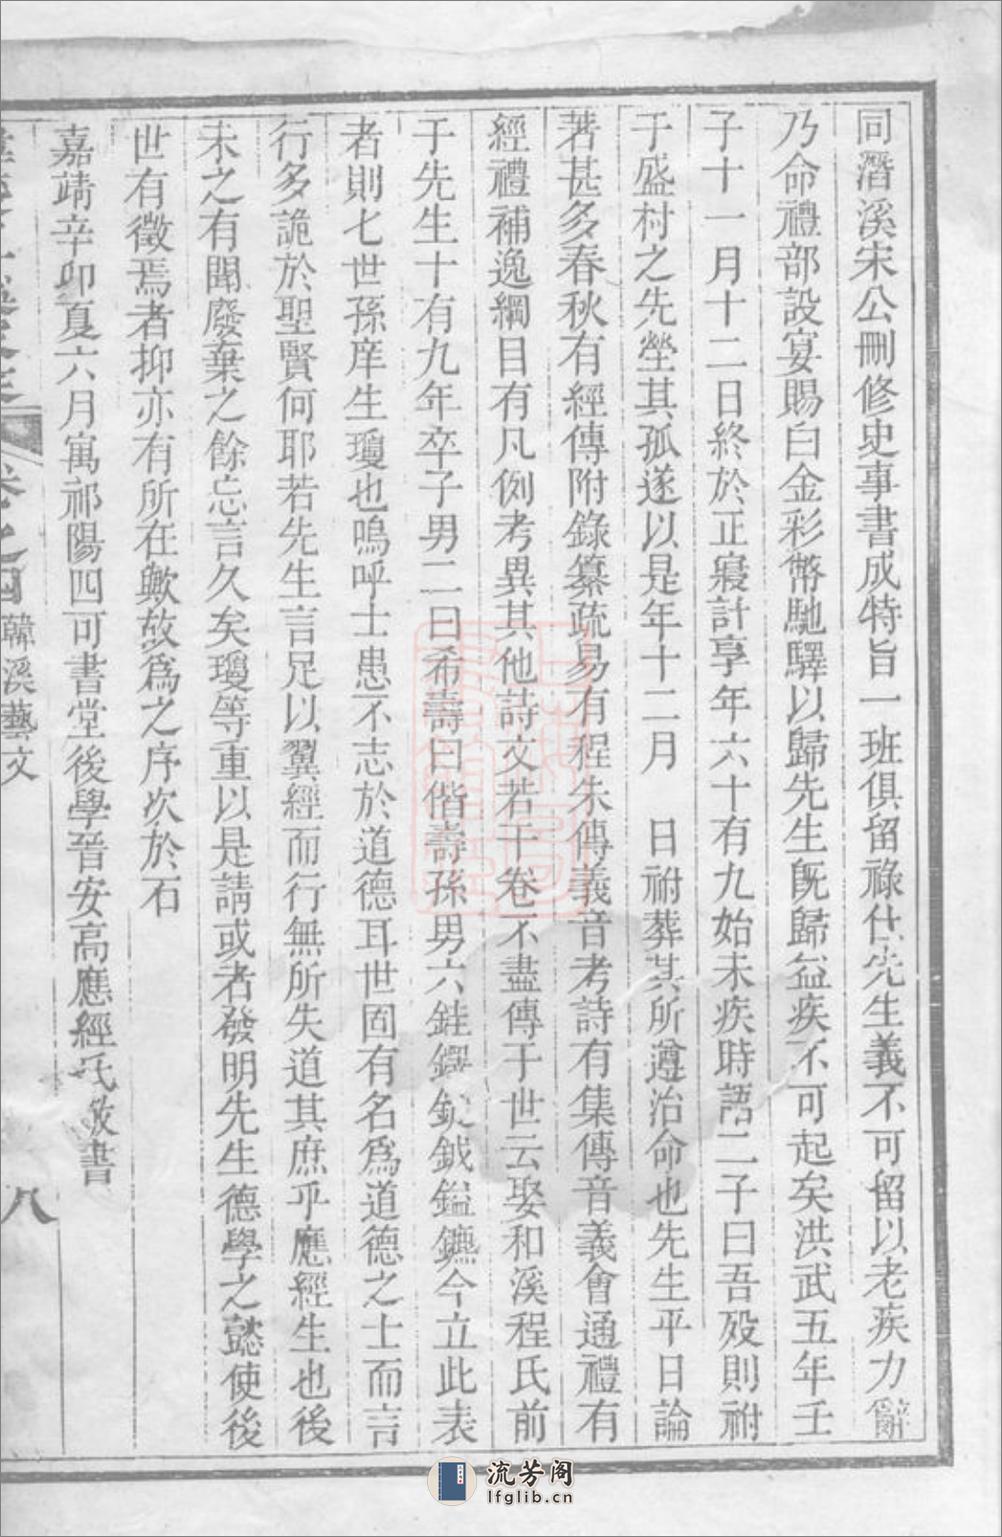 同潛溪宋公刪修史事書成特旨一班俱留祿仕先生義不可留以老疾力辭
乃命禮部設宴賜白金彩幣馳驛以歸先生旣歸益疾不可起矣洪武五年壬
子十一月十二日終於正寢計享年六十有九始未疾時語二子曰吾歿則祔
于盛村之先塋其孤遂以是年十二月 日祔葬其所遵治命也先生平日論
著甚多春秋有經傳附錄纂疏易有程朱傳義音考詩有集傳音義會通禮有
經禮補逸綱目有凡例考異其他詩文若干卷不盡傳于世云娶和溪程氏前
于先生十有九年卒子男二曰希壽曰偕壽孫男六銈鐸鈫鉞鎰鑣今立此表
者則七世孫庠生瓊也嗚呼士患不志於道德耳世固有名爲道德之士而言
行多詭於聖賢何耶若先生言足以翼經而行無所失道其庶乎應經生也後
未之有聞廢棄之餘忘言久矣瓊等重以是請或者發明先生德學之懿使後
世有徵焉者抑亦有所在歟故爲之序次於石
嘉靖辛卯夏六月寓祁陽四可書堂後學晉安高應經氏敬書
卷之四 韓溪藝文 八
流芳阁
lfglib.cn